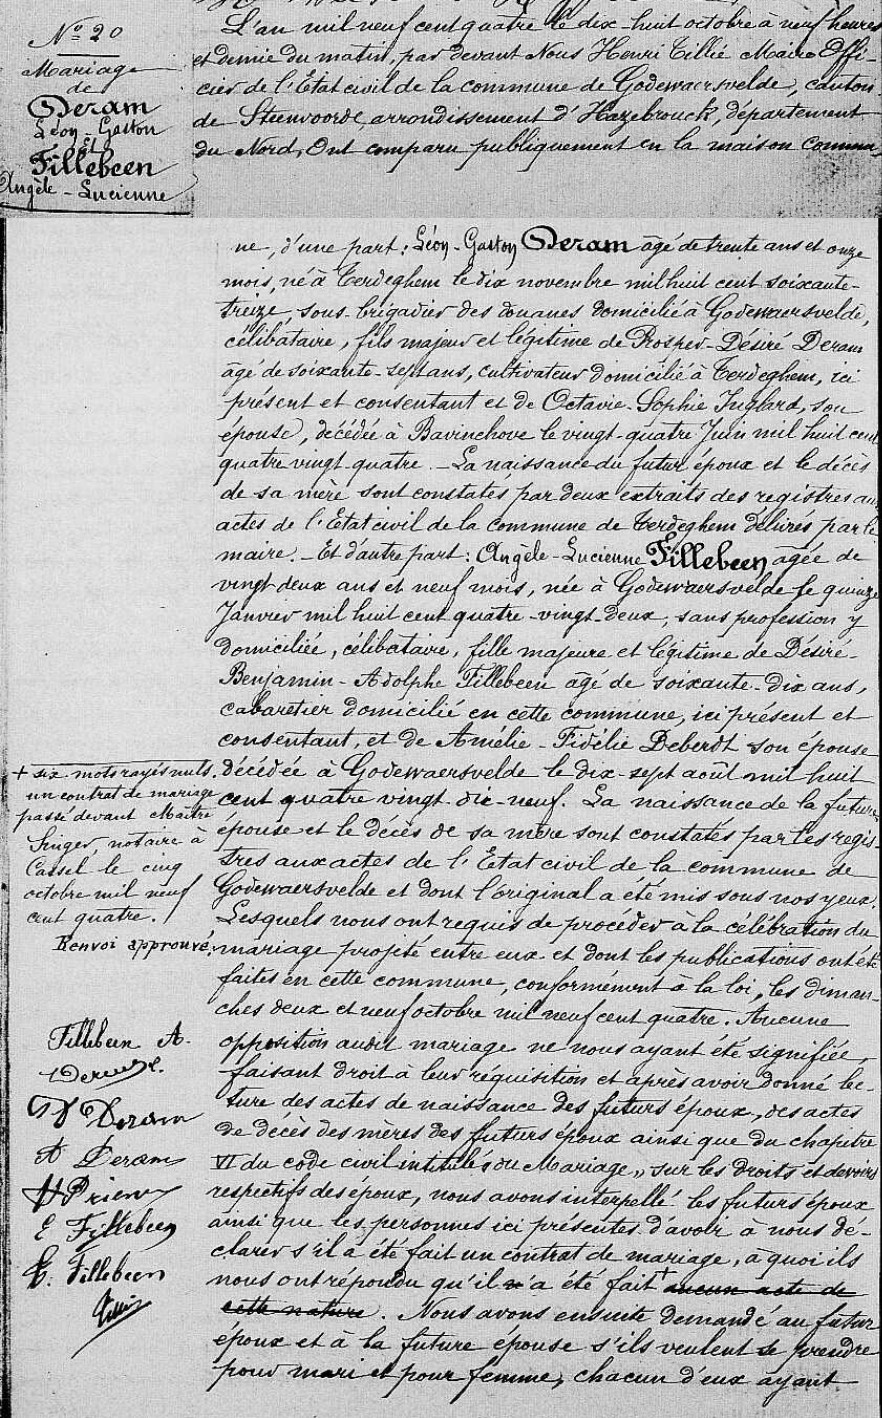 N° 20
Mariage
de
Deram
Léon-Gaston
Et
Fillebeen
Angèle-Lucienne
L'an mil neuf cent quatre le dix-huit octobre à neuf heures
et demie du matin, par devant Nous Henri Tillié Maire Offi-
cier de l'Etat civil de la commune de Godewaersvelde, canton
de Steenvoorde, arrondissement d'Hazebrouck, département
du Nord, Ont comparu publiquement en la maison commu-
ne, d'une part: Léon-Gaston Deram âgé de trente ans et onze
mois, né à Terdeghem le dix novembre mil huit cent soixante-
treize, sous-brigadier des douanes domicilié à Godewaersvelde,
célibataire, fils majeur et légitime de Prosper-Désiré Deram
âgé de soixante-sept ans, cultivateur domicilié à Terdeghem, ici
présent et consentant et de Octavie-Sophie Inglard, son
épouse, décédée à Bavinchove le vingt-quatre Juin mil huit cent
quatre vingt-quatre. - La naissance du futur époux et le décès
de sa mère sont constatés par deux extraits des registres aux
actes de l'Etat civil de la commune de Terdeghem délivrés par le
maire. - Et d'autre part: Angèle-Lucienne Fillebeen âgée de
vingt deux ans et neuf mois, née à Godewaersvelde le quinze
Janvier mil huit cent quatre-vingt-deux, sans profession y
domiciliée, célibataire, fille majeure et légitime de Désiré-
Benjamin-Adolphe Fillebeen âgé de soixante-dix ans,
cabaretier domicilié en cette commune, ici présent et
consentant, et de Amélie-Fidélie Deberdt son épouse
décédée à Godewaersvelde le dix-sept août mil huit
cent quatre vingt-dix-neuf. La naissance de la future
épouse et le décès de sa mère sont constatés par les regis-
tres aux actes de l'Etat civil de la commune de
Godewaersvelde et dont l'original a été mis sous nos yeux.
Lesquels nous ont requis de procéder à la célébration du
mariage projeté entre eux et dont les publications ont été
faites en cette commune, conformément à la loi, les diman-
ches deux et neuf octobre mil neuf cent quatre. Aucune
opposition audit mariage ne nous ayant été signifiée,
faisant droit à leur réquisition et après avoir donné lec-
ture des actes de naissance des futurs époux, des actes
de décès des mères des futurs époux ainsi que du chapitre
VI du code civil intitulé "du Mariage" sur les droits et devoirs
respectifs des époux, nous avons interpellé les futurs époux
ainsi que les personnes ici présentes d'avoir à nous dé-
clarer s'il a été fait un contrat de mariage, à quoi ils
nous ont répondu qu'il n'a été fait + aucun acte de
cette nature. Nous avons ensuite demandé au futur
époux et à la future épouse s'ils veulent se prendre
pour mari et pour femme, chacun d'eux ayant
+ six mots rayés nuls.
un contrat de mariage
passé devant Maître
Singer, notaire à
Cassel le cinq
octobre mil neuf
cent quatre.
Renvoi approuvé.
Fillebeen A.
D Deram
A Deram
H Prien
E Fillebeen
E. Fillebeen